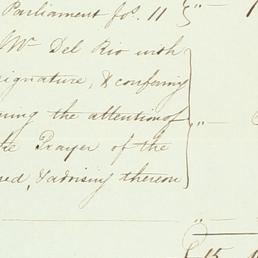 Parliament fos. 11 } " —
Mr Del Rio with
signature, & conferring
ning the attention of } " —
the Prayer of the
red, & advising thereon
" —
15